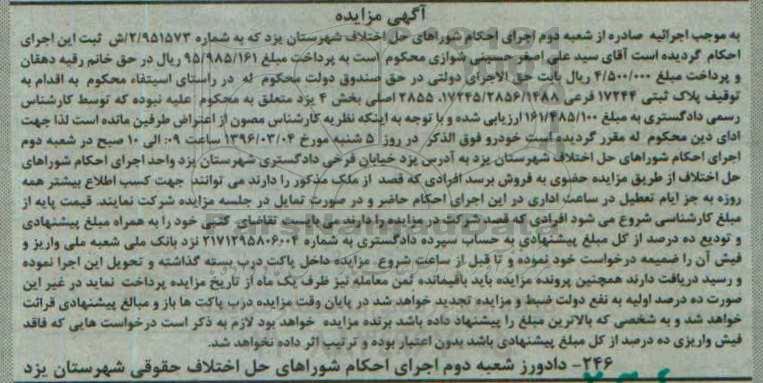 آگهی مزایده
به موجب اجرائیه صادره از شعبه دوم اجرای احکام شوراهای حل اختلاف شهرستان یزد که به شماره ۲/۹۵۱۵۷۳/ش ثبت این اجرای
احکام گردیده است آقای سید علی اصغر حسینی شوازی محکوم است به پرداخت مبلغ ۹۵/۹۸۵/۱۶۱ ریال در حق خانم رقیه دهقان
و پرداخت مبلغ ۴/۵۰۰/۰۰۰ ریال بابت حق الاجرای دولتی در حق صندوق دولت محکوم له در راستای استیفاء محکوم به اقدام به
توقیف پلاک ثبتی ۱۷۲۴۴ فرعی ۱۷۲۴۵/۲۸۵۶/۱۲۸۸، ۲۸۵۵ اصلی بخش ۴ یزد متعلق به محکوم علیه نیوده که توسط کارشناس
رسمی دادگستری به مبلغ ۱۶۱/۴۸۵/۱۰۰ ارزیابی شده و با توجه به اینکه نظریه کارشناس مصون از اعتراض طرفین مانده است لذا جهت
ادای دین محکوم له مقرر گردیده است خودرو فوق الذکر در روز ۵ شنبه مورخ ۱۳۹۶/۰۳/۰۴ ساعت ۰۹: الی ۱۰ صبح در شعبه دوم
اجرای احکام شوراهای حل اختلاف شهرستان یزد به آدرس یزد خیابان فرخی دادگستری شهرستان یزد واحد اجرای احکام شوراهای
حل اختلاف از طریق مزایده حضوی به فروش برسد افرادی که قصد از ملک مذکور را دارند می توانند جهت کسب اطلاع بیشتر همه
روزه به جز ایام تعطیل در ساعت اداری در این اجرای احکام حاضر و در صورت تمایل در جلسه مزایده شرکت نمایند. قیمت پایه از
مبلغ کارشناسی شروع می شود افرادی که قصد شرکت در مزایده را دارند می بایست تقاضای کتبی خود را به همراه مبلغ پیشنهادی
و تودیع ده درصد از کل مبلغ پیشنهادی به حساب سپرده دادگستری به شماره ۲۱۷۱۲۹۵۸۰۶۰۰۴ نزد بانک ملی شعبه ملی واریز و
فیش آن را ضمیمه درخواست خود نموده و تا قبل از ساعت شروع مزایده داخل پاکت درب بسته گذاشته و تحویل این اجرا نموده
و رسید دریافت دارند همچنین پرونده مزایده باید باقیمانده ثمن معامله نیز ظرف یک ماه از تاریخ مزایده پرداخت نماید در غیر این
صورت ده درصد اولیه به نفع دولت ضبط و مزایده تجدید خواهد شد در پایان وقت مزایده درب پاکت ها باز و مبالغ پیشنهادی قرائت
خواهد شد و به شخصی که بالاترین مبلغ را پیشنهاد داده باشد برنده مزایده خواهد بود لازم به ذکر است درخواست هایی که فاقد
فیش واریزی ده درصد از کل مبلغ پیشنهادی باشد بدون اعتبار بوده و ترتیب اثر داده نخواهد شد.
۲۴۶- دادورز شعبه دوم اجرای احکام شوراهای حل اختلاف حقوقی شهرستان یزد